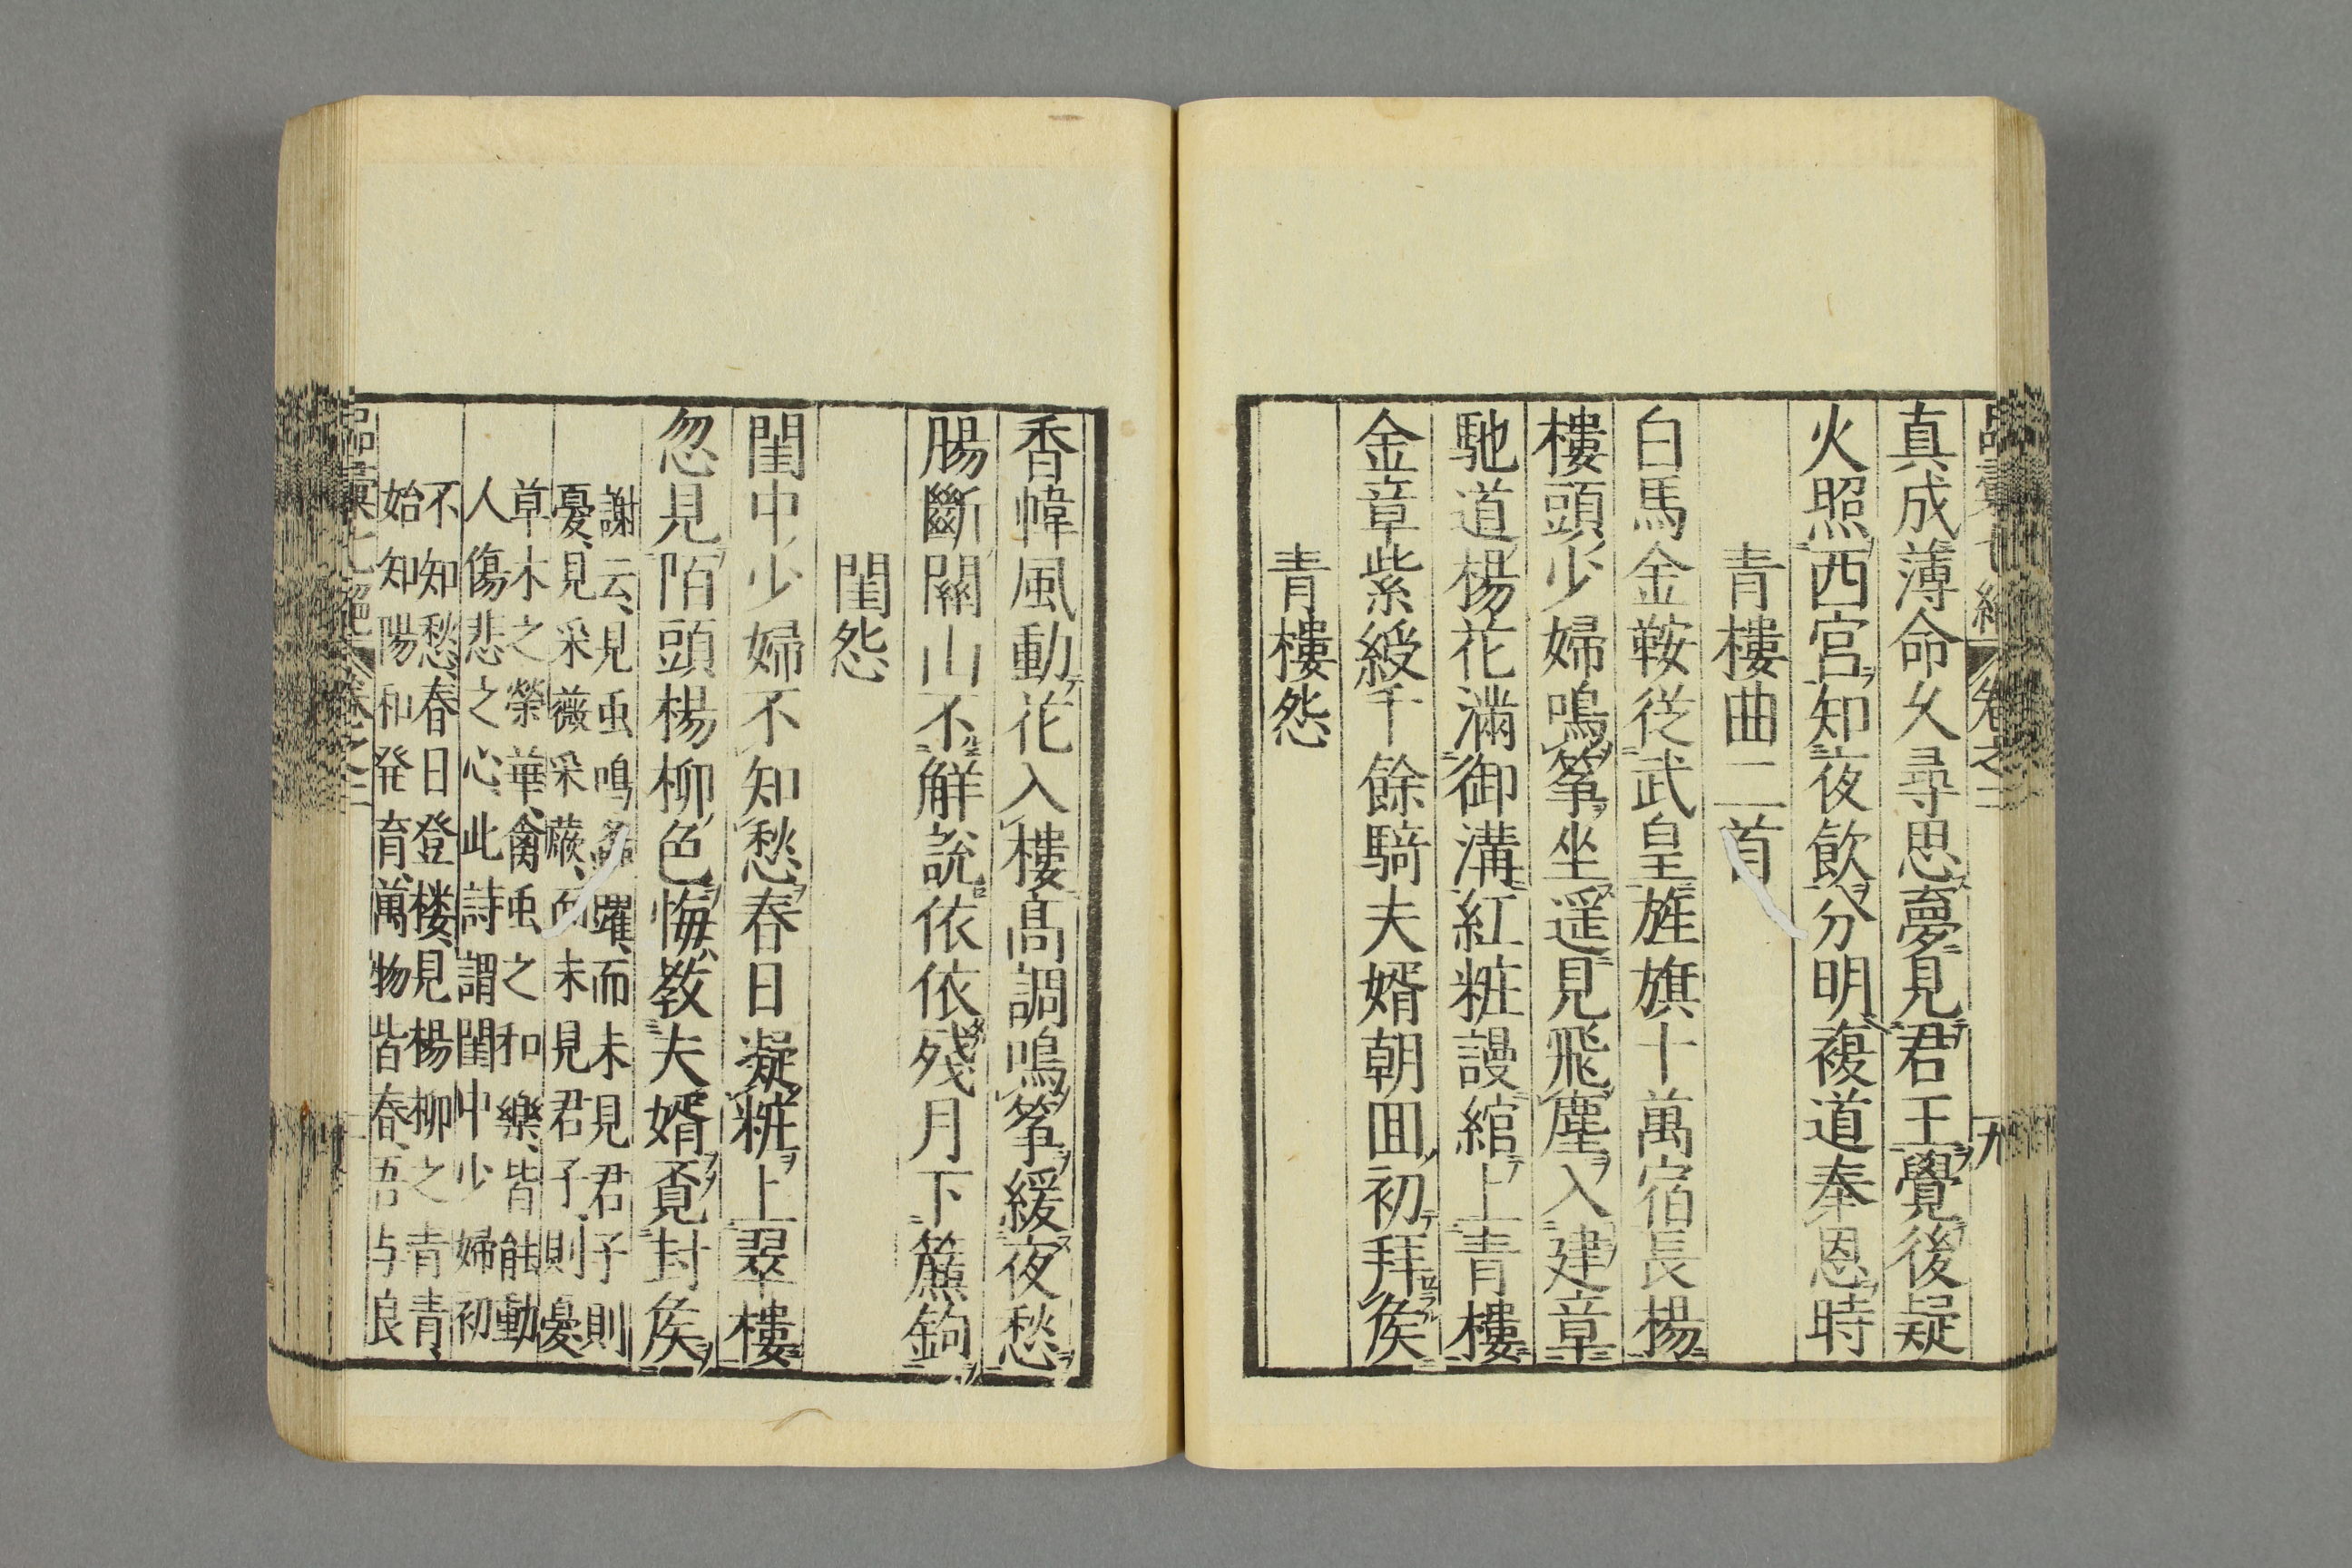 真成薄命久尋思夢見君王覺後疑
火照西宮知夜飲分明複道奉恩時
青樓曲二首
白馬金鞍從武皇旌旗十萬宿長楊
樓頭少婦鳴筝坐遥見飛塵入建章
馳道楊花滿御溝紅粧謾綰上青樓
金章紫綬千餘騎夫婿朝囬初拜矦
青樓怨
香幃風動花入樓髙調鳴筝緩夜愁
腸斷關山不觧說依依殘月下簾鉤
閨怨
閨中少婦不知愁春日凝粧上翠樓
忽見陌頭楊柳色悔教夫婿覔封矦
謝云、見虫鳴螽躍、而未見君子則
憂、見采薇采蕨、而未見君子、則憂、
草木之榮華、禽虫之和樂、皆能動
人傷悲之心、此詩謂閨中少婦初
不知愁、春日登楼、見楊柳之青青、
始知陽和発育、萬物皆春、吾与良